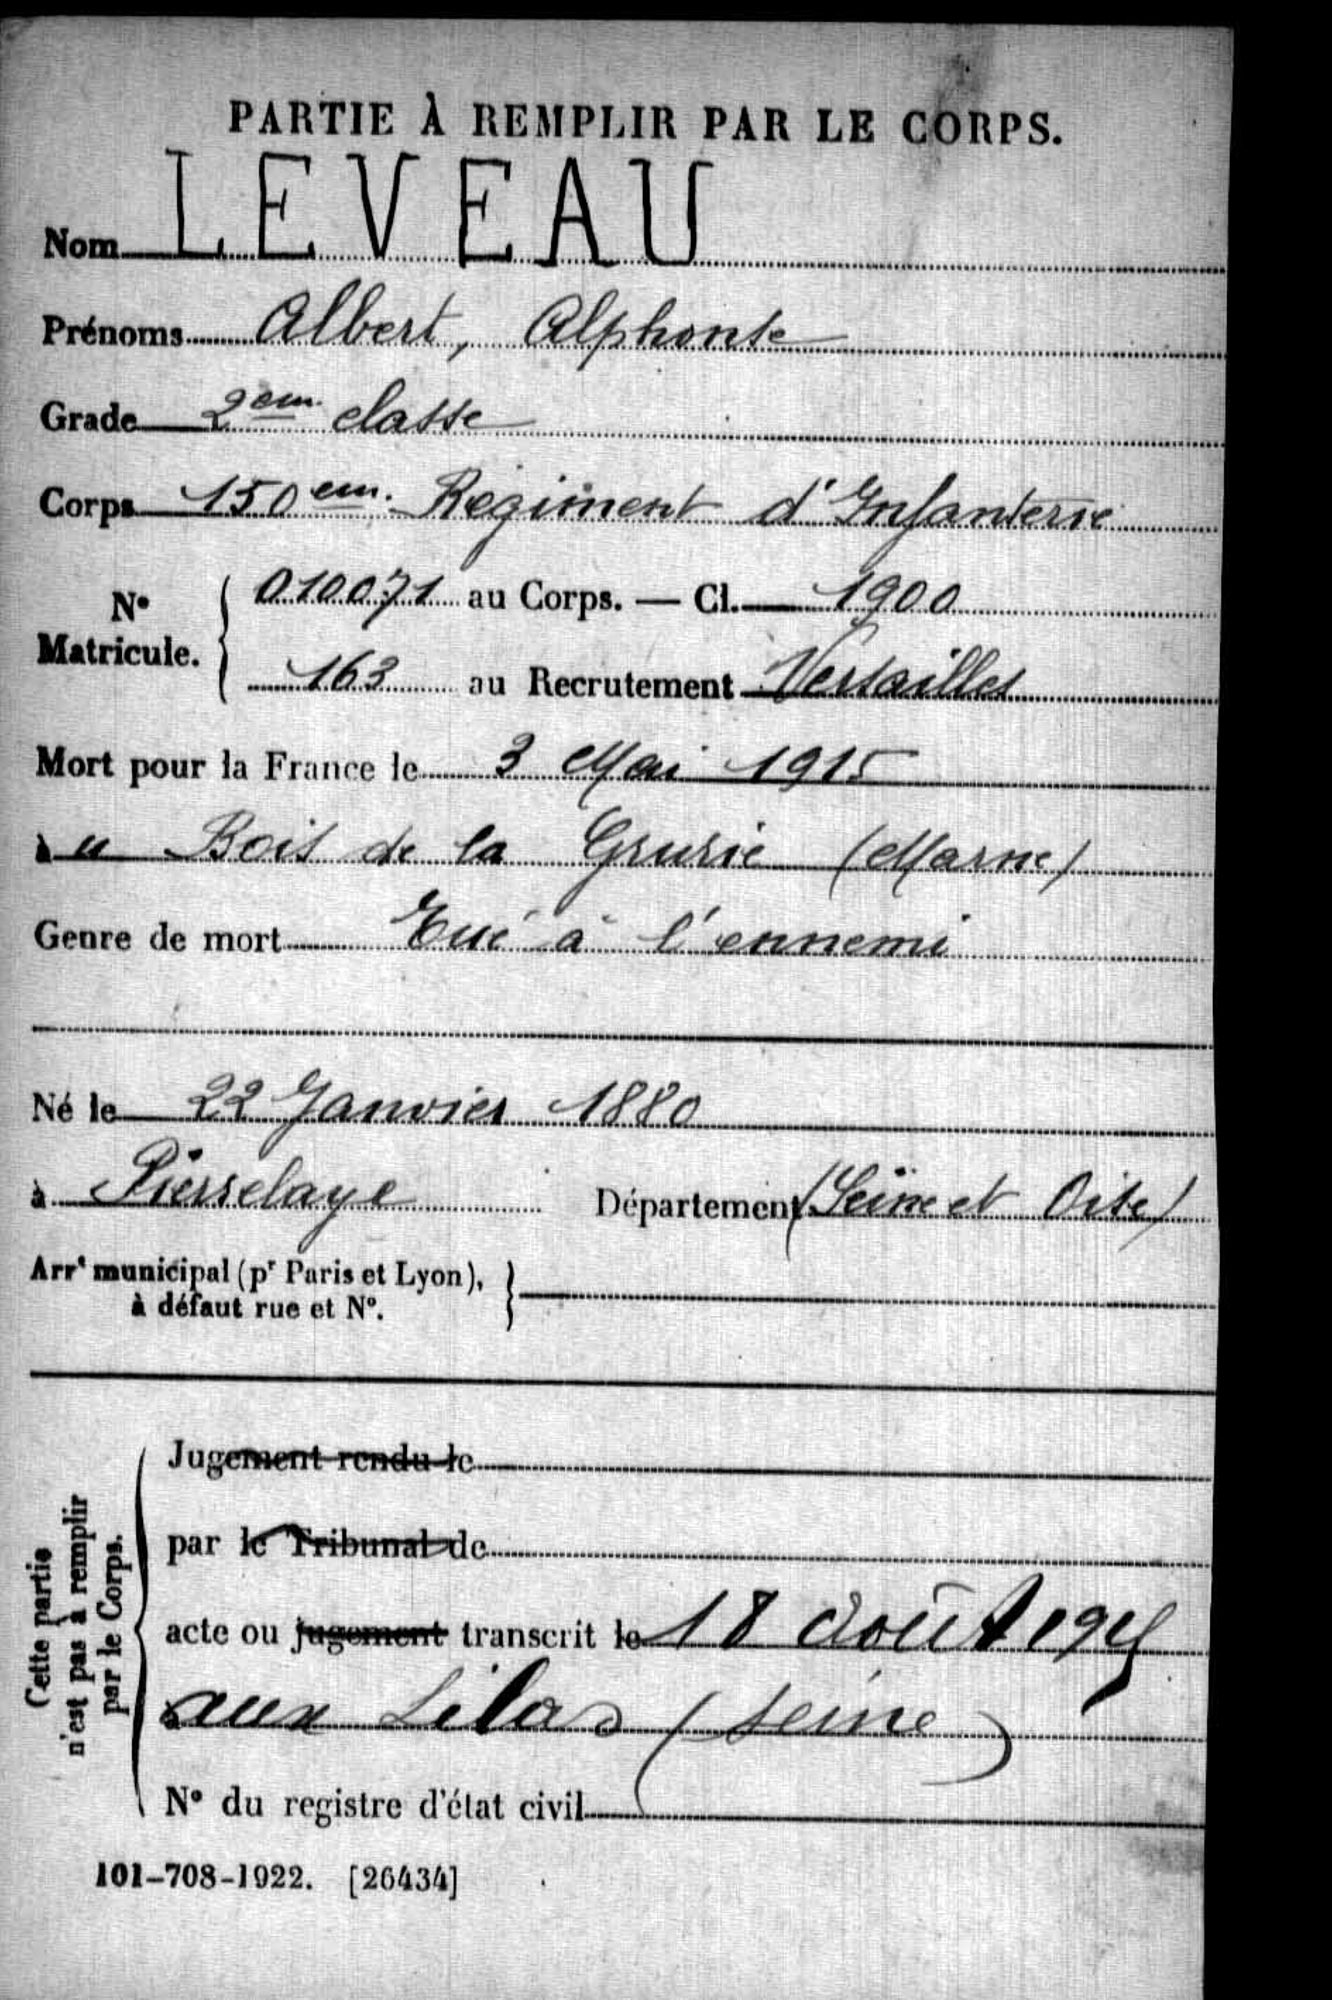 PARTIE À REMPLIR PAR LE CORPS.
Nom LEVEAU
Prénoms Albert, Alphonse
Grade 2em. classe
Corps 150em. Régiment d'Infanterie
N° Matricule. { 010071 au Corps. — Cl. 1900
163 au Recrutement Versailles
Mort pour la France le 3 Mai 1915
à u Bois de la Grurie (Marne)
Genre de mort Tué à l'ennemi
Né le 22 Janvier 1880
à Pierrelaye Département (Seine et Oise)
Arrt municipal (pr Paris et Lyon),
à défaut rue et N°.
Cette partie
n'est pas à remplir
par le Corps.
Jugement rendu le
par le Tribunal de
acte ou jugement transcrit le 18 août
aux Lilas (Seine)
N° du registre d'état civil
101-708-1922. [26434]